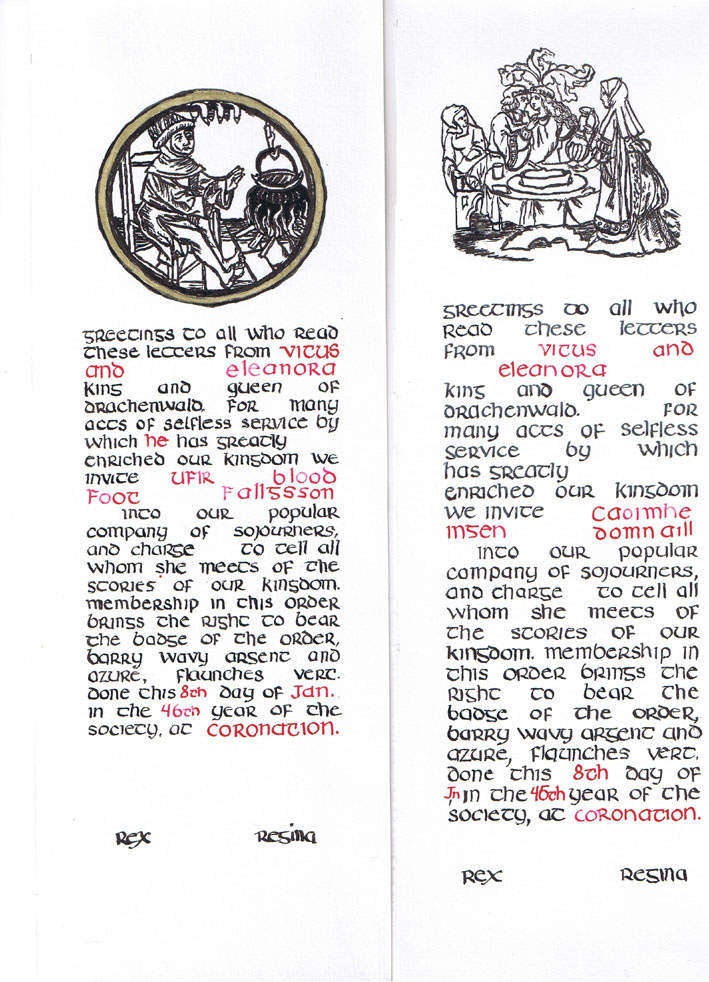 greetings to all who read
these letters from vitus
and eleanora
king and queen of
drachenwald. for many
acts of selfless service by
which he has greatly
enriched our kingdom we
invite ufir blood
foot fallgsson
into our popular
company of sojourners,
and charge to tell all
whom she meets of the
stories of our kingdom.
membership in this order
brings the right to bear
the badge of the order,
barry wavy argent and
azure, flaunches vert.
done this 8th day of Jan.
in the 46th year of the
society, at coronation.
Rex Regina
greetings to all who
read these letters
from vitus and
eleanora
king and queen of
drachenwald. for
many acts of selfless
service by which
has greatly
enriched our kingdom
we invite Caoimhe
ingen domnaill
into our popular
company of sojourners,
and charge to tell all
whom she meets of
the stories of our
kingdom. membership in
this order brings the
right to bear the
badge of the order,
barry wavy argent and
azure, flaunches vert.
done this 8th day of
Jn, in the 46th year of the
society, at coronation.
Rex Regina